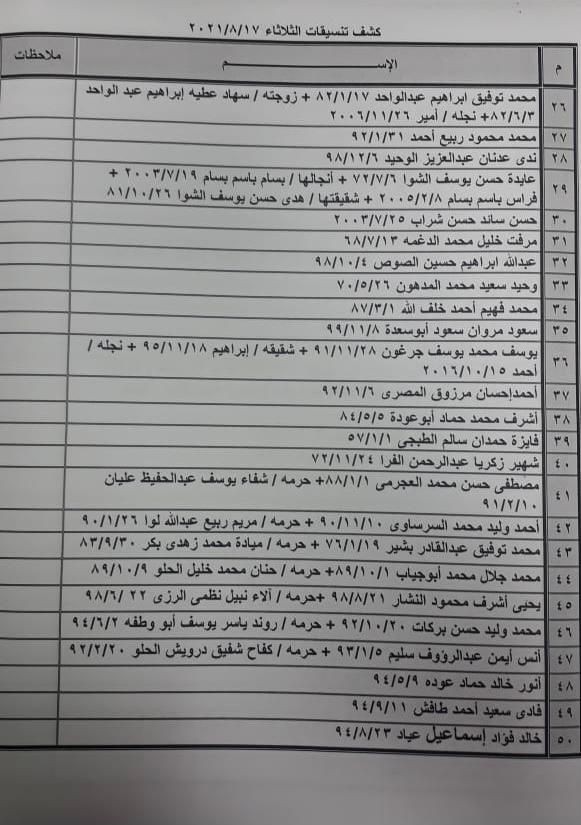 كشف تنسيقات الثلاثاء ٢٠٢١/٨/١٧
م الإســـــم ملاحظات
٢٦ محمد توفيق ابراهيم عبدالواحد ٨٢/١/١٧ + زوجته / سهاد عطيه إبراهيم عبد الواحد
٨٢/٦/٣+ نجله / أمير ٢٠٠٦/١١/٢٦
٢٧ محمد محمود ربيع أحمد ٩٢/١/٣١
٢٨ ندى عدنان عبدالعزيز الوحيد ٩٨/١٢/٦
٢٩ عايدة حسن يوسف الشوا ٧٢/٧/٦ + أنجالها / بسام باسم بسام ٢٠٠٣/٧/١٩ +
فراس باسم بسام ٢٠٠٥/٢/٨ + شقيقتها / هدى حسن يوسف الشوا ٨١/١٠/٢٦
٣٠ حسن ساند حسن شراب ٢٠٠٣/٧/٢٥
٣١ مرفت خليل محمد الدغمه ٦٨/٧/١٣
٣٢ عبدالله ابراهيم حسين الصوص ٩٨/١٠/٤
٣٣ وحيد سعيد محمد المدهون ٧٠/٥/٢٦
٣٤ محمد فهيم أحمد خلف الله ٨٧/٣/١
٣٥ سعود مروان سعود أبوسعدة ٩٩/١١/٨
٣٦ يوسف محمد يوسف جرغون ٩١/١١/٢٨ + شقيقه / إبراهيم ٩٥/١١/١٨ + نجله /
أحمد ٢٠١٦/١٠/١٥
٣٧ أحمدإحسان مرزوق المصرى ٩٢/١١/٦
٣٨ أشرف محمد حماد أبوعودة ٨٤/٥/٥
٣٩ فايزة حمدان سالم الطبجى ٥٧/١/١
٤٠ شهير زكريا عبدالرحمن الفرا ٧٢/١١/٢٤
٤١ مصطفى حسن محمد العجرمى ٨٨/١/١+ حرمه / شفاء يوسف عبدالحفيظ عليان
٩١/٢/١٠
٤٢ أحمد وليد محمد السرساوى ٩٠/١١/١٠ + حرمه / مريم ربيع عبدالله لوا ٩٠/١/٢٦
٤٣ محمد توفيق عبدالقادر بشير ٧٦/١/١٩ + حرمه / ميادة محمد زهدى بكر ٨٣/٩/٣٠
٤٤ محمد جلال محمد أبوجياب ٨٩/١٠/١+ حرمه / حنان محمد خليل الحلو ٨٩/١٠/٩
٤٥ يحيى أشرف محمود النشار ٩٨/٨/٢١ +حرمه / آلاء نبيل نظمى الرزى ٢٢ /٩٨/٦
٤٦ محمد وليد حسن بركات ٩٢/١٠/٢٠ + حرمه / روند ياسر يوسف أبو وطفه ٩٤/٦/٢
٤٧ أنس أيمن عبدالرؤوف سليم ٩٣/١/٥ + حرمه / كفاح شفيق درويش الحلو ٩٢/٢/٢٠
٤٨ أنور خالد حماد عوده ٩٤/٥/٩
٤٩ فادى سعيد أحمد طافش ٩٤/٩/١١
٥٠ خالد فؤاد إسماعيل عياد ٩٤/٨/٢٣